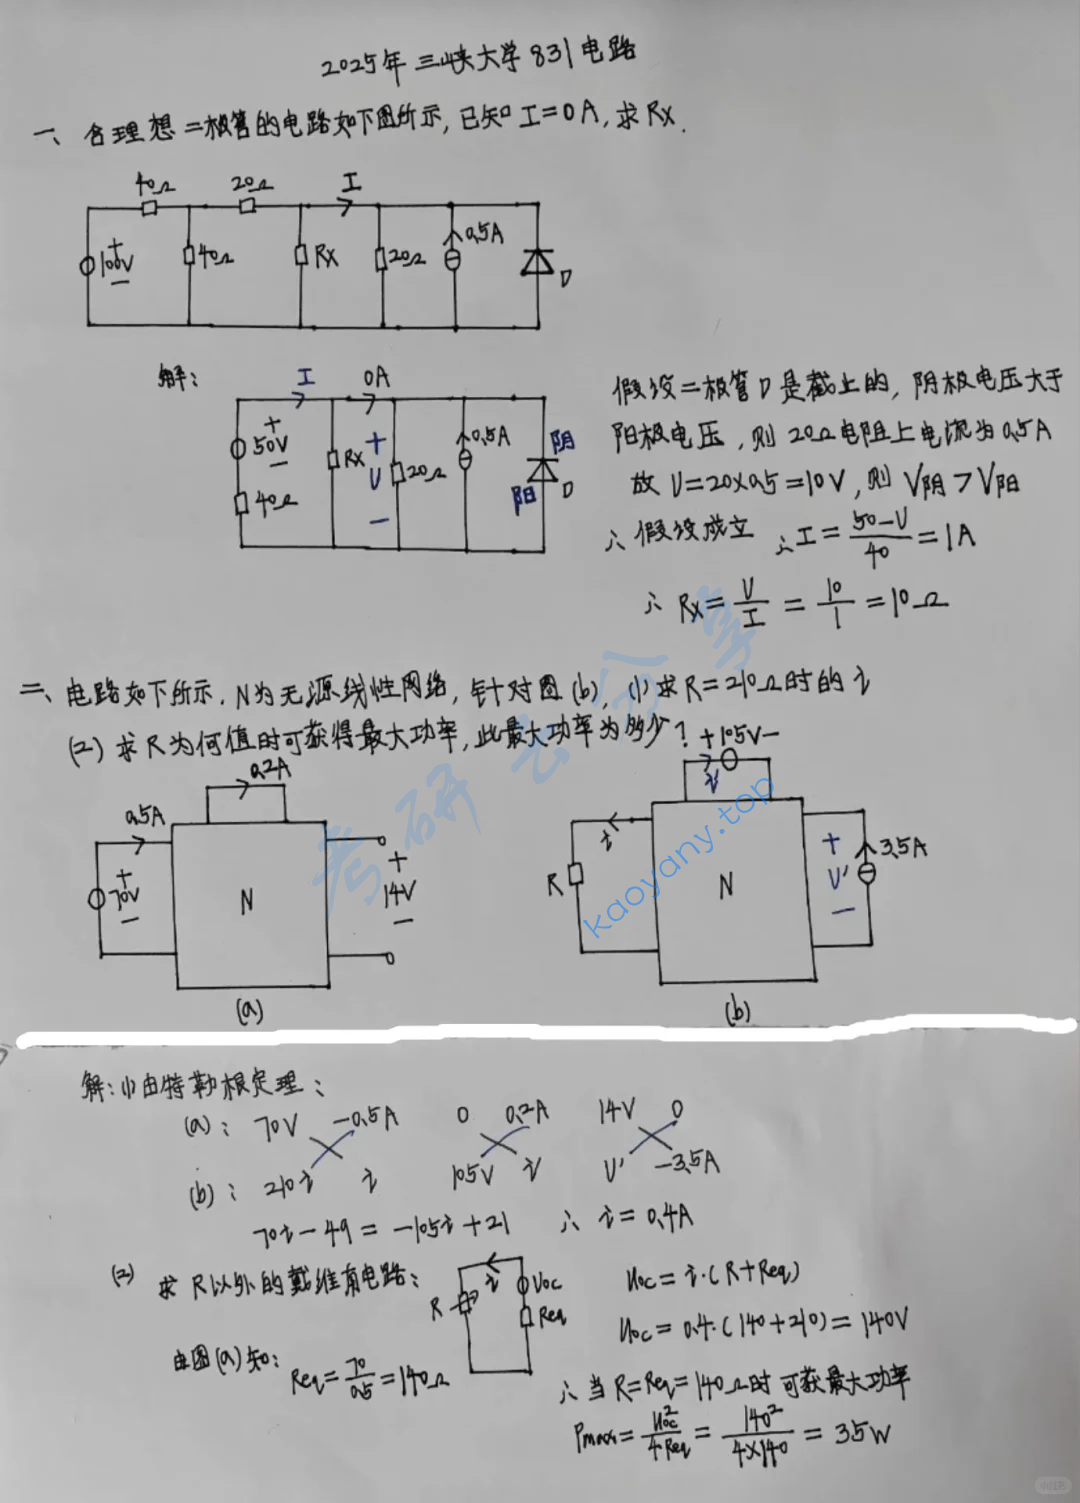 2025年 三峡大学 831 电路
一、含理想二极管的电路如下图所示, 已知 I=0A, 求 Rx.
40Ω 20Ω I
100V + − 40Ω Rx 20Ω 0.5A D
解: I 0A
50V + − 40Ω Rx + U − 20Ω 0.5A 阴 阳 D
假设二极管D是截止的, 阴极电压大于
阳极电压, 则 20Ω电阻上电流为0.5A
故 U=20×0.5=10V, 则 V阴>V阳
∴ 假设成立 ∴ I=50-U/40=1A
∴ Rx=U/I=10/1=10Ω
二、电路如下所示, N为无源线性网络, 针对图(b), (1)求R=210Ω时的i
(2) 求R为何值时可获得最大功率, 此最大功率为多少?
0.2A
0.5A
70V + − N + 14V −
(a)
+105V−
i
i
R N + U' − 3.5A
(b)
考研云分享
kaoyany.top
解: (1)由特勒根定理:
(a): 70V -0.5A 0 0.2A 14V 0
(b): 210i i 105V i U' -3.5A
70i-49=-105i+21 ∴ i=0.4A
(2) 求R以外的戴维南电路:
R i Uoc Req
Uoc=i·(R+Req)
Uoc=0.4·(140+210)=140V
由图(a)知: Req=70/0.5=140Ω
∴ 当R=Req=140Ω时 可获最大功率
Pmax=Uoc²/4Req=140²/4×140=35W